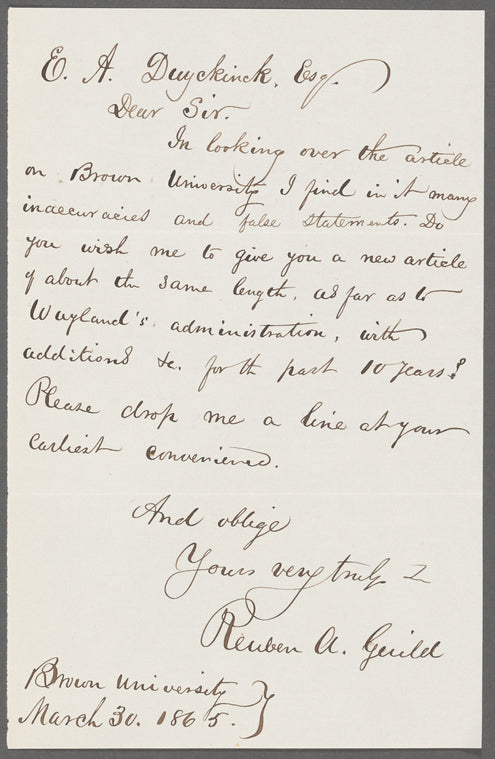 E. A. Duyckinck, Esq.
Dear Sir.
In looking over the article
on Brown University I find in it many
inaccuracies and false statements. Do
you wish me to give you a new article
of about the same length, as far as to
Wayland's administration, with
additions &c. for th past 10 years?
Please drop me a line at your
earliest convenience.
And oblige
Yours very truly
Reuben A. Guild
Brown University
March 30. 1865.